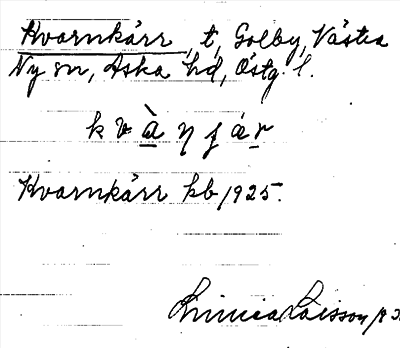 Kvarnkärr, t, Solby, Västra
Ny sn, Aska hd, Östg. l.
k v à η f á r
Kvarnkärr kb 1925.
Linnea Larsson